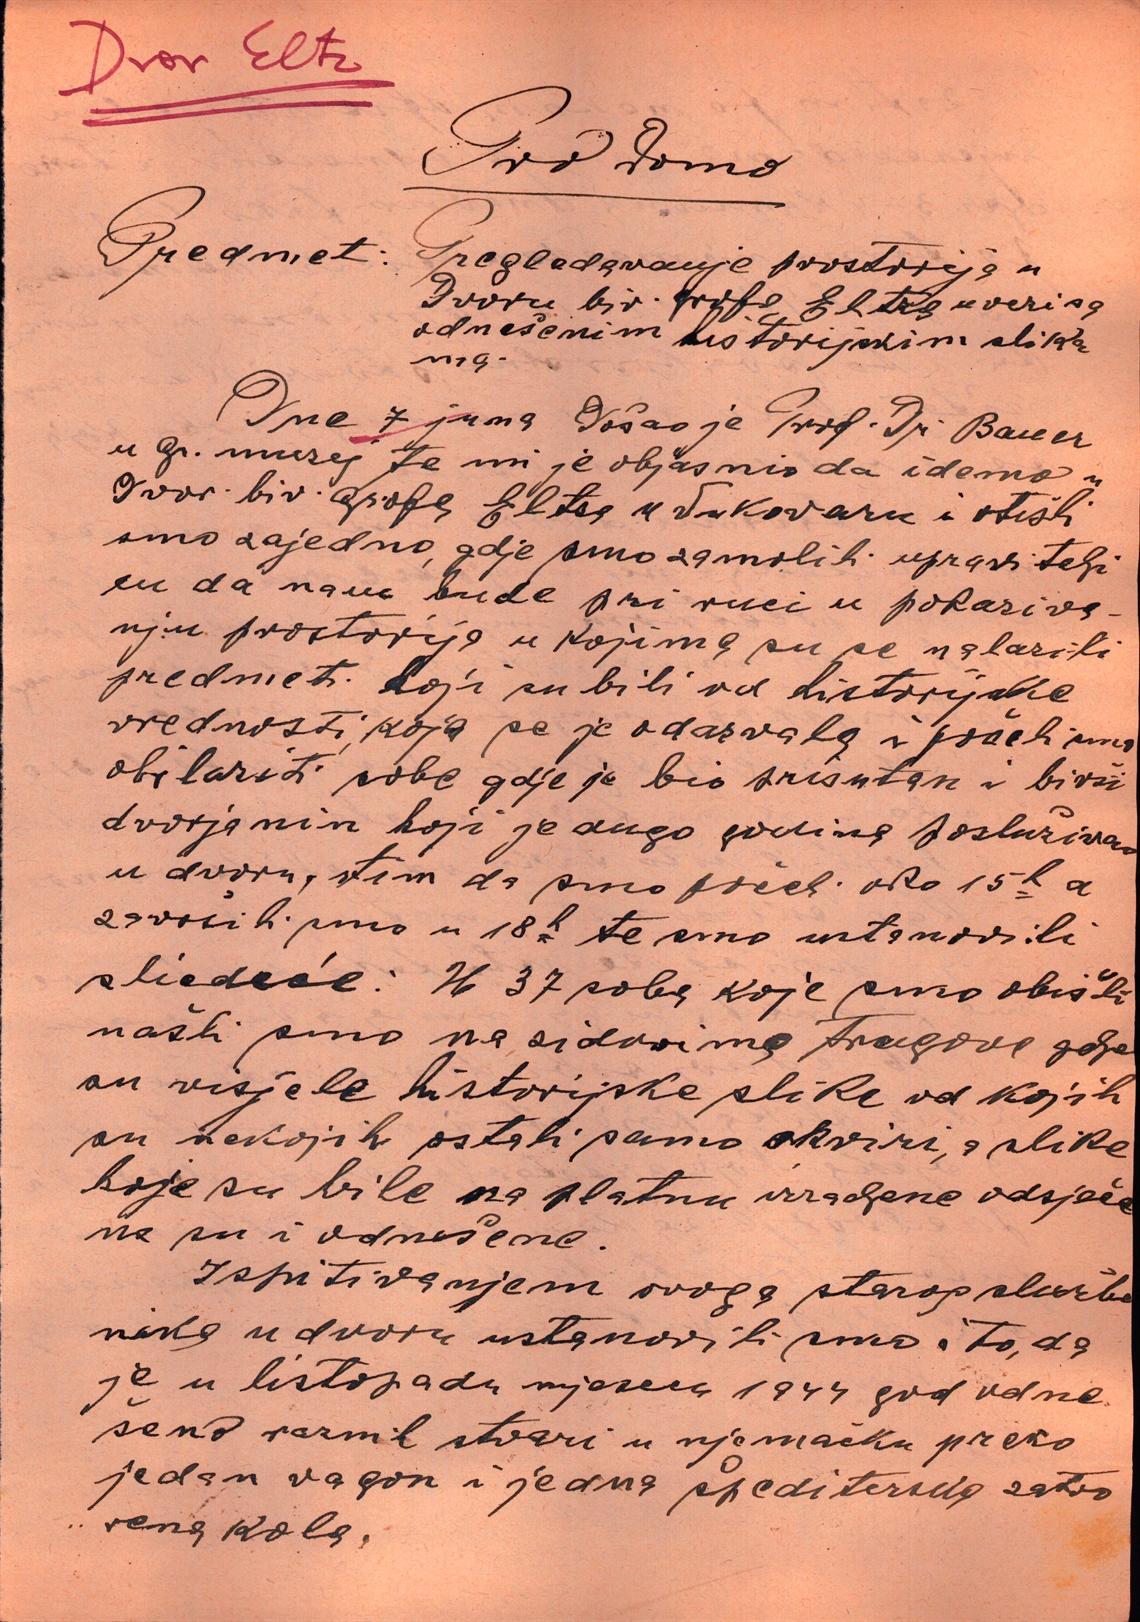 Dvor Eltz
Pro domo
Predmet: Pregledavanje prostorija u
Dvoru biv. grofa Eltza u vezi sa
odnešenim historijskim slika
ma.
Dne 7 juna Došao je Prof. Dr. Bauer
u gr. muzej te mi je objasnio da idemo u
Dvor biv. grofa Eltza u Vukovaru i otišli
smo zajedno, gdje smo zamolili upravitelji
cu da nam bude pri ruci u pokaziva-
nju prostorija u kojima su se nalazili
predmeti koji su bili od historijske
vrednosti, koja se je odazvala i počeli smo
obilaziti sobe gdje je bio prisutan i bivši
dvorjanin koji je dugo godina posluživao
u dvoru, stim da smo počeli oko 15h a
završili smo u 18h te smo ustanovili
sliedeće: U 37 soba koje smo obišli
našli smo na zidovima tragove gdje
su visjele historijske slike od kojih
su nekojih ostali samo okviri, a slike
koje su bile na platnu izradjene odsječe
ne su i odnešene.
Ispitivanjem ovoga starog službe
nika u dvoru ustanovili smo i to, da
je u listopadu mjesecu 1944 god odne
šeno razmih stvari u njemačku preko
jedan vagon i jedna špediterska zatvo
rena kola.